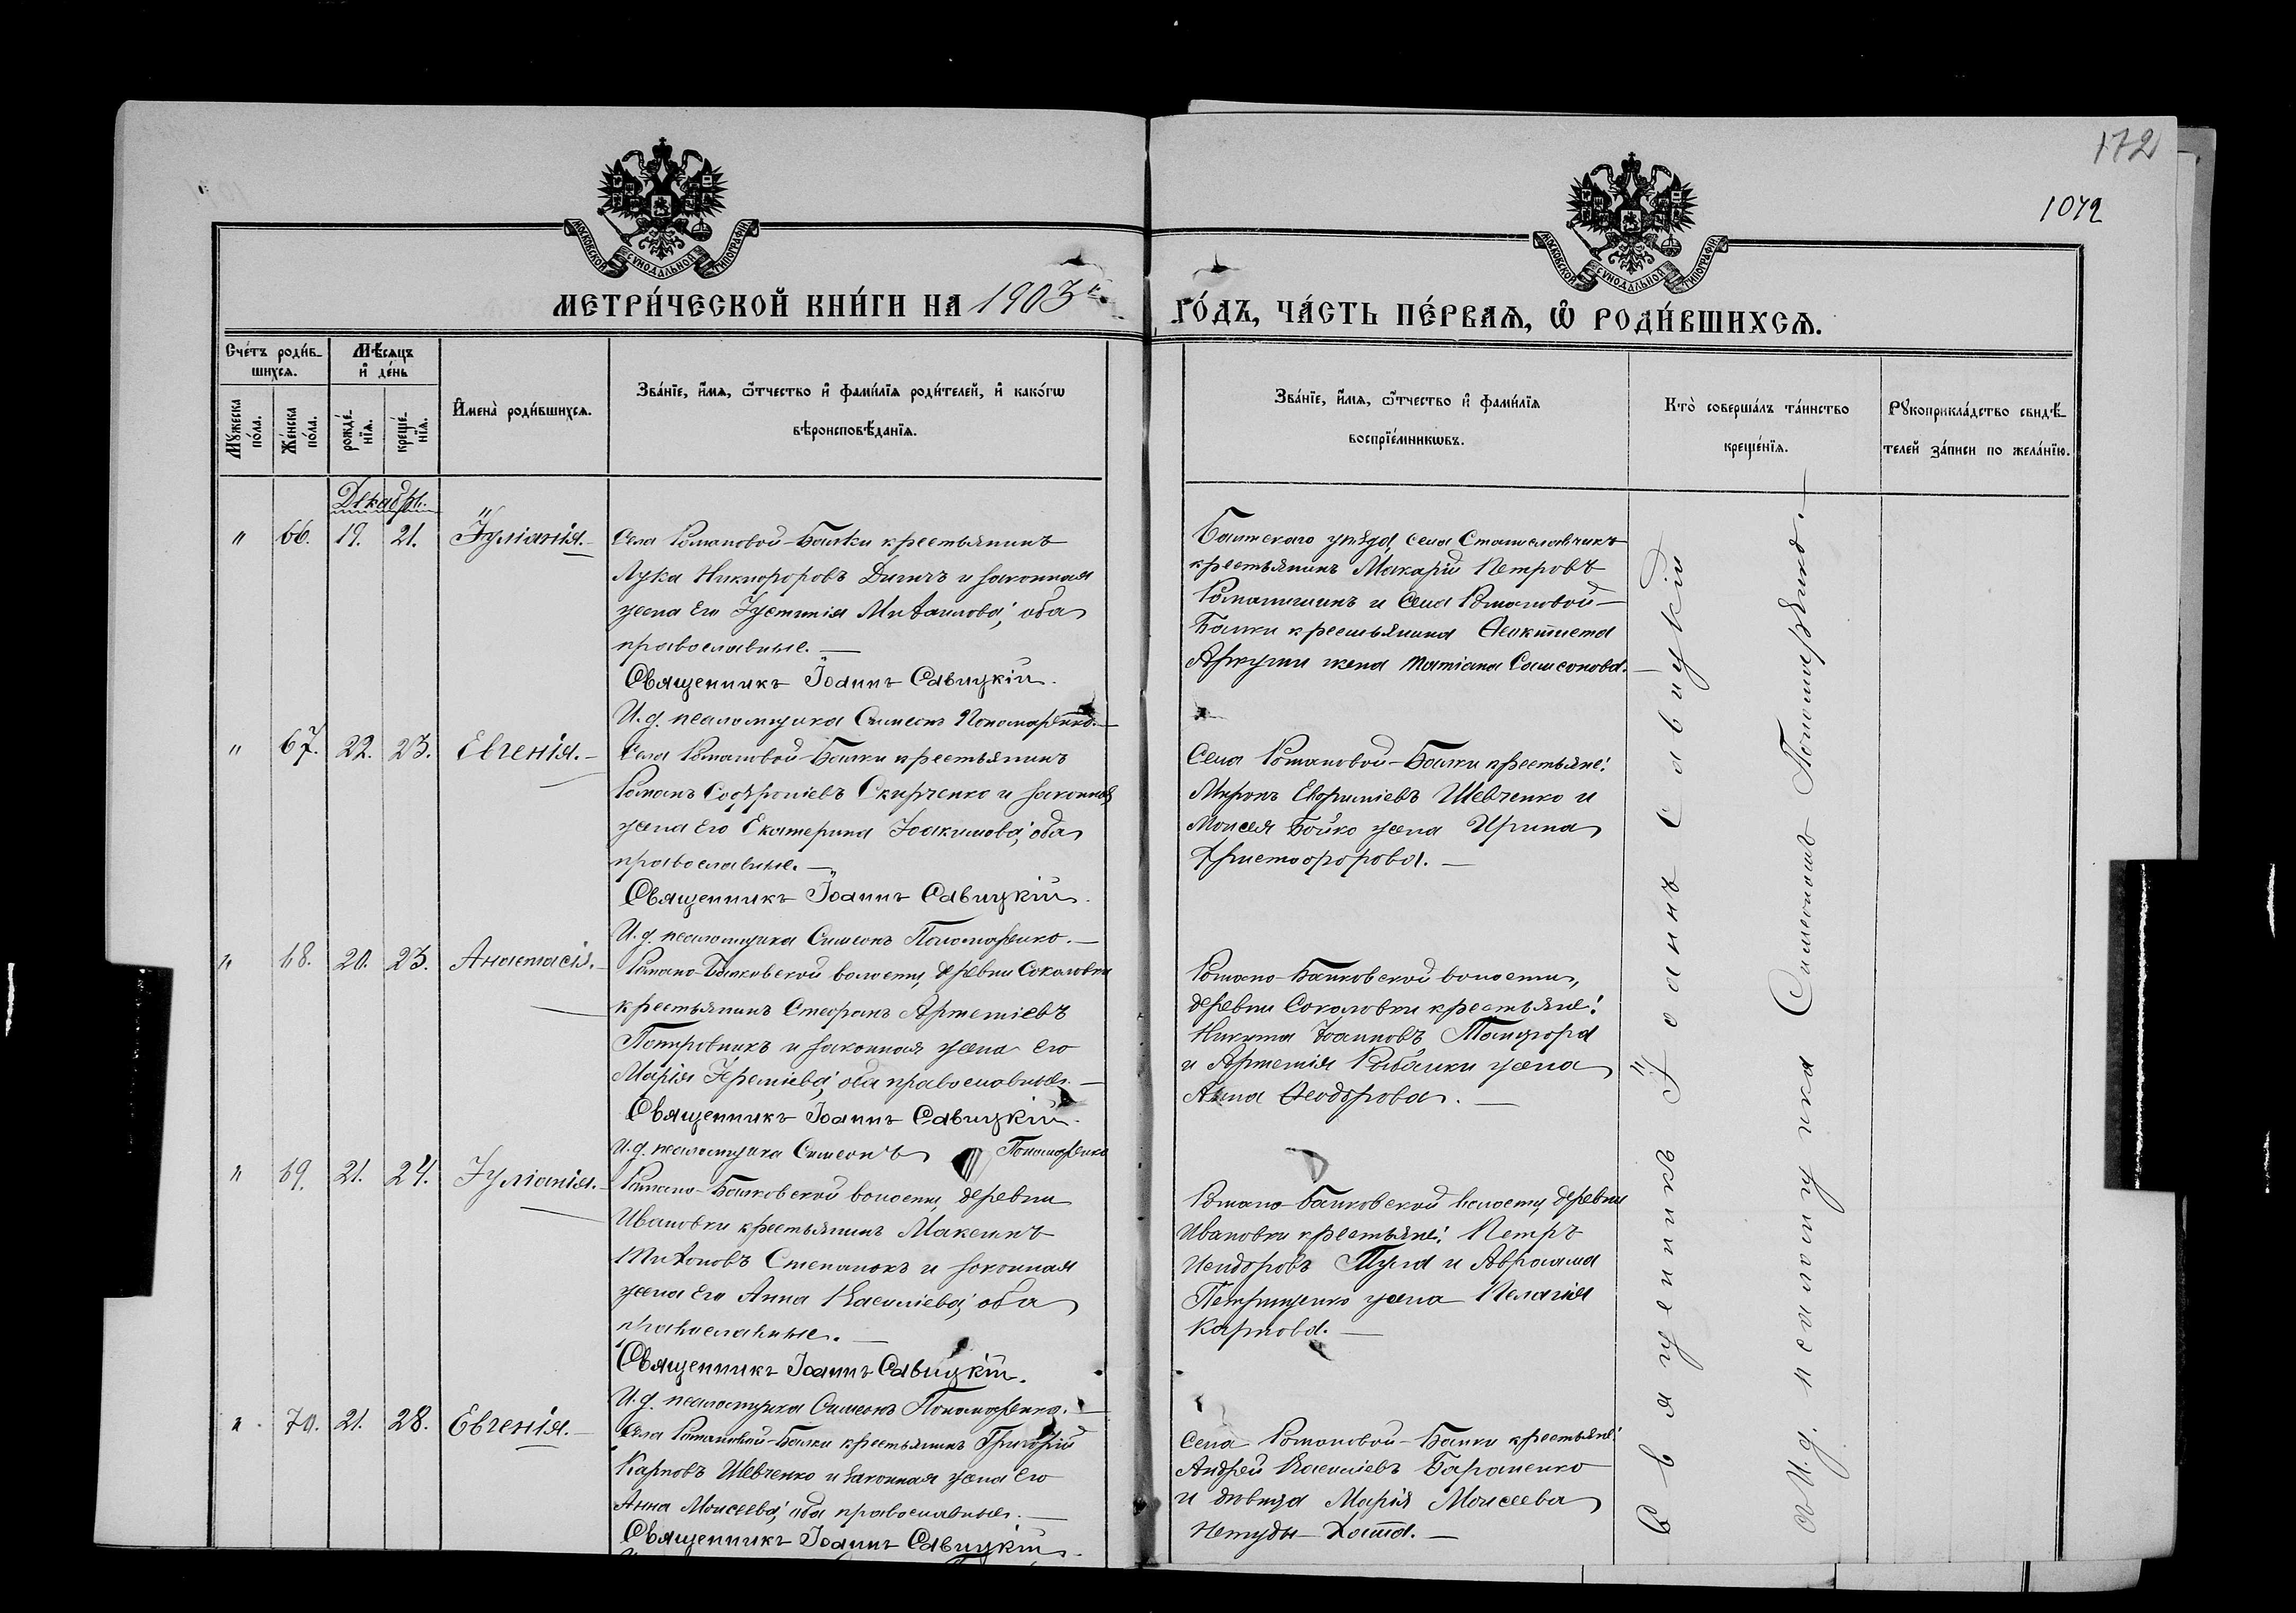 172
1072
МОСКОВСКОЙ СУНОДАЛЬНОЙ ТИПОГРАФІИ
МОСКОВСКОЙ СУНОДАЛЬНОЙ ТИПОГРАФІИ
МЕТРИ́ЧЕСКОЙ КНИ́ГИ НА 1903й
ГО́ДЪ, ЧА́СТЬ ПЕ́РВАѦ, Ѡ РОДИ́ВШИХСѦ.
Сче́тъ роди́в-
шихсѧ.
Мѣ́сѧцъ
и҆ де́нь
Мꙋ́жеска
по́ла.
Же́нска
по́ла.
рожде́-
нїѧ.
креще́-
нїѧ.
И҆мена̀ роди́вшихсѧ.
Зва́нїе, и҆́мѧ, ѻ҆́тчество и҆ фами́лїѧ роди́телей, и҆ како́гѡ
вѣроисповѣ́данїѧ.
Зва́нїе, и҆́мѧ, ѻ҆́тчество и҆ фами́лїѧ
воспрїе́мникѡвъ.
Кто̀ соверша́лъ та́инство
креще́нїѧ.
Рꙋкоприкла́дство свидѣ́-
телей за́писи по жела́нїю.
Декабрь.
" 66. 19. 21. Іуліанія.
Села Романовой-Балки крестьянинъ
Лука Никифоровъ и законная
жена его Іустинія Михаилова, оба
православные.
Священникъ Іоаннъ Савицкій.
И. д. псаломщика Симеонъ Пономаренко.
Балтскаго уѣзда, села Станиславчикъ
крестьянинъ Макарій Петровъ
и села Романовой-
Балки крестьянина Ѳеоктиста
жена Татіана Самсонова.
" 67. 22. 23. Евгенія.
Села Романовой-Балки крестьянинъ
Романъ Софроніевъ Скирченко и законная
жена его Екатерина Іоакимова, оба
православные.
Священникъ Іоаннъ Савицкій.
И. д. псаломщика Симеонъ Пономаренко.
Села Романовой-Балки крестьяне:
Миронъ Шевченко и
Моисея Бойко жена Ирина
Христофорова.
" 68. 20. 23. Анастасія.
Романо-Балковской волости, деревни Соколовки
крестьянинъ Стефанъ Артеміевъ
и законная жена его
Марія Іереміева, оба православные.
Священникъ Іоаннъ Савицкій.
И. д. псаломщика Симеонъ Пономаренко
Романо-Балковской волости,
деревни Соколовки крестьяне:
Никита Іоанновъ
и Артемія жена
Анна Ѳеодорова.
" 69. 21. 24. Іуліанія.
Романо-Балковской волости, деревни
Ивановки крестьянинъ Максимъ
Тихоновъ Степанокъ и законная
жена его Анна Василіева, оба
православные.
Священникъ Іоаннъ Савицкій.
И. д. псаломщика Симеонъ Пономаренко.
Романо-Балковской волости, деревни
Ивановки крестьяне: Петръ
Исидоровъ и Авраама
Петрищенко жена Пелагія
Карпова.
" 70. 21. 28. Евгенія.
Села Романовой-Балки крестьянинъ Григорій
Карповъ Шевченко и законная жена его
Анна Моисеева, оба православные.
Священникъ Іоаннъ Савицкій.
Села Романовой-Балки крестьяне:
Андрей Василіевъ Бараненко
и дѣвица Марія Моисеева
Нетуды-Хата.
Священникъ Іоаннъ Савицкій
И. д. псаломщика Симеонъ Пономаренко.